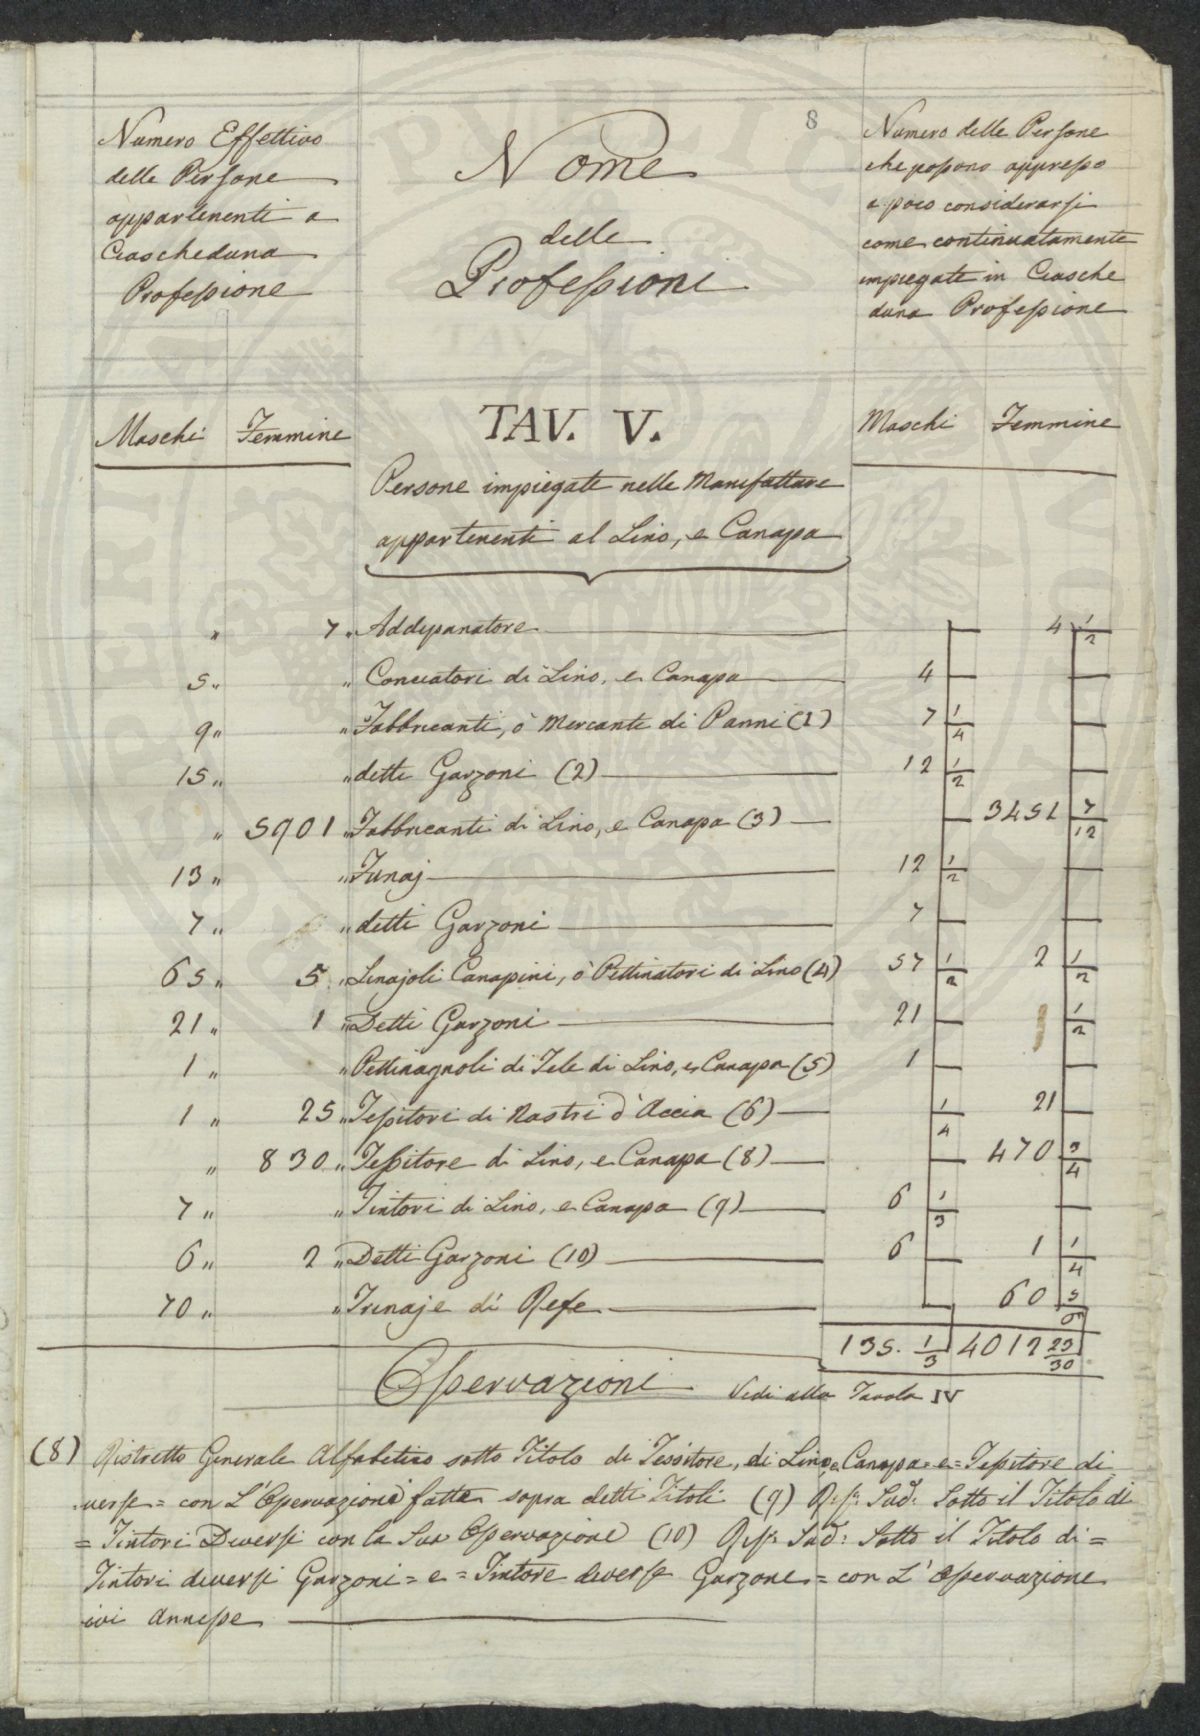 8
Numero Effettivo
delle Persone
appartenenti a
Ciascheduna
Professione
Nome
delle
Professioni
Numero delle Persone
che possono appresso
a poco considerarsi
come continuatamente
impiegate in Ciasche
duna Professione
Maschi Femmine
TAV. V.
Maschi Femmine
Persone impiegate nelle Manifatture
appartenenti al Lino, e Canapa
" 7 " Addipanatore 4 1/2
5 " " Conciatori di Lino, e Canapa 4
9 " " Fabbricanti, ò Mercanti di Panni (1) 7 1/4
15 " " detti Garzoni (2) 12 1/2
" 5901 " Fabbricanti di Lino, e Canapa (3) 3451 7/12
13 " " Funaj 12 1/2
7 " " detti Garzoni 7
65 " 5 " Linajoli Canapini, ò Pettinatori di Lino (4) 57 1/2 2 1/2
21 " 1 " Detti Garzoni 21 1/2
1 " " Pettinagnoli di Tele di Lino, e Canapa (5) 1
1 " 25 " Tessitori di Nastri d'Accia (6) 1/4 21
" 830 " Tessitore di Lino, e Canapa (8) 470 3/4
7 " " Tintori di Lino, e Canapa (9) 6 1/3
6 " 2 " Detti Garzoni (10) 6 1 1/4
70 " " Trinaje di Refe 60 5/6
135. 1/3 4012 23/30
Osservazioni Vedi alla Tavola IV
(8) Ristretto Generale Alfabetico sotto Titolo di Tessitore, di Lino, e Canapa = e = Tessitore di
verse = con L'Osservazioni fatte sopra detti Titoli (9) Ris: Sud: Sotto il Titolo di
= Tintori Diversi con la Sua Osservazione (10) Ris: Sud: Sotto il Titolo di =
Tintori diversi Garzoni = e = Tintore diverse Garzone = con L'Osservazione
ivi Annesse